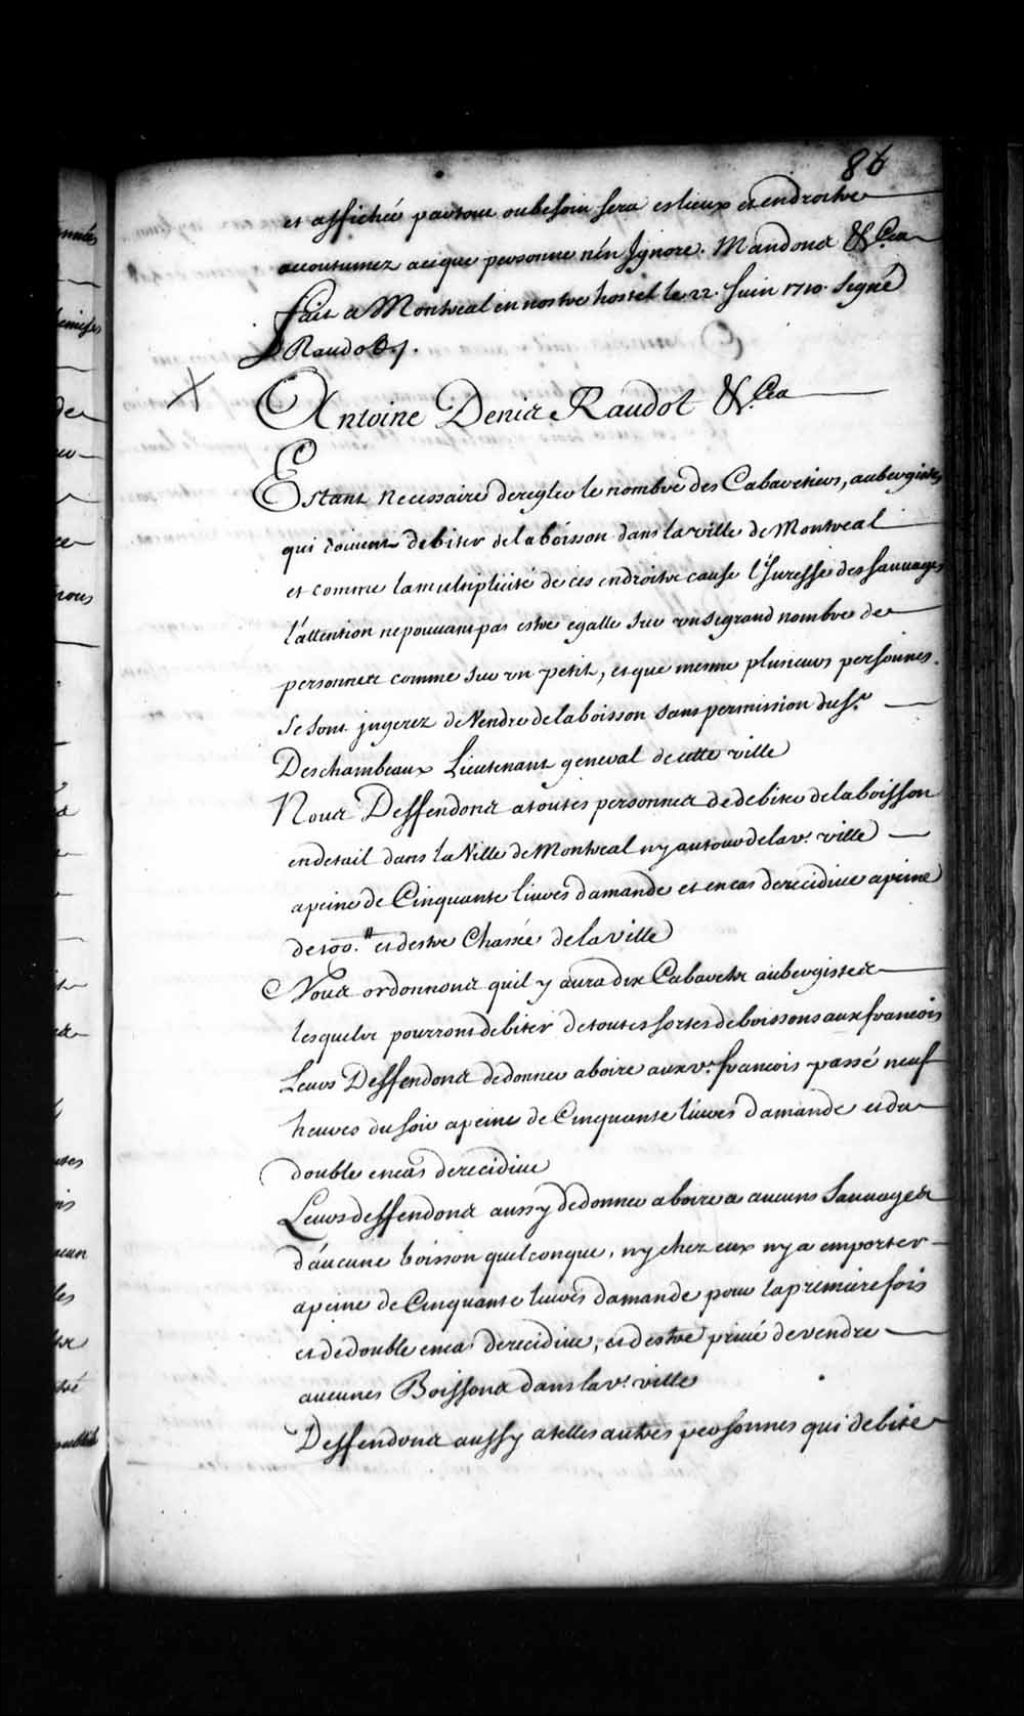 86
et affichée partout ou besoin sera es lieux et endroits
accoutumez a ce que personne n'en Ignore. Mandons &c.ca
fait a Montreal en nostre hostel le 22. Juin 1710. Signé
Raudot.
Antoine Denis Raudot &c.ca
Estant necessaire de regler le nombre des Cabaretiers, aubergistes,
qui doivent debiter de la boisson dans la ville de Montreal
et comme la multiplicité de ces endroits cause l'Yuresse des sauuages
l'attention ne pouuant pas estre egalle sur un si grand nombre de
personnes comme sur un petit, et que mesme plusieurs personnes.
se sont jngerez de Vendre de la boisson sans permission du Sr.
Deschambeaux Lieutenant general de cette ville
Nous Deffendons a toutes personnes de debiter de la boisson
en detail dans la Ville de Montreal ny autour de lad. ville
a peine de Cinquante liures d'amande et en cas de recidiue a peine
de 100.tt et d'estre Chassée de la ville
Nous ordonnons quil y aura dix Cabarets aubergistes
lesquels pourront debiter de toutes sortes de boissons aux francois
Leurs Deffendons de donner a boire auxd. francois passé neuf
heures du soir a peine de Cinquante liures d'amande et du
double en cas de recidiue
Leurs deffendons aussy de donner a boire a aucuns Sauuages
d'aucune boisson quelconque, ny chez eux ny a emporter
a peine de Cinquante liures d'amande pour la premiere fois
et de double en cas de recidiue, et d'estre priué de vendre
aucunes Boissons dans lad. ville
Deffendons aussy a telles autres personnes qui debite